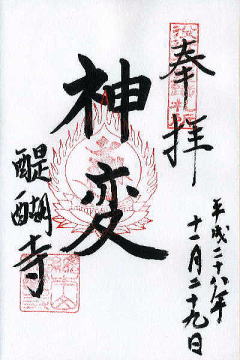 奉拝
平成二十八年
十一月二十九日
神変
醍醐寺